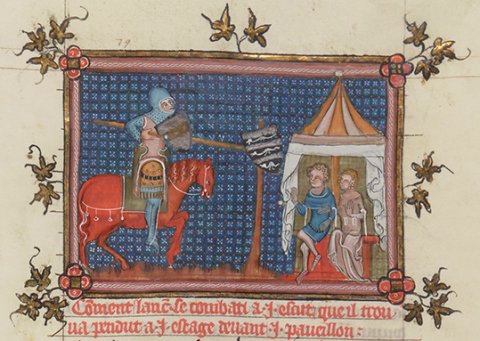 Com̃ent lanc̃. se combati a .j. escut que il trou
ua pendut a .j. estage deuant .j. paueillon :